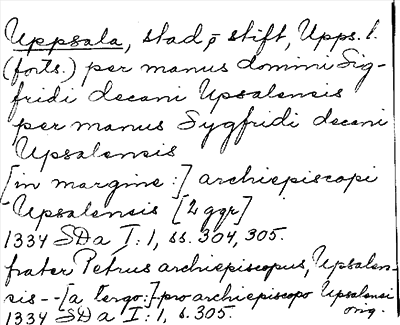 Uppsala, stad o stift, Upps. l.
(forts.) per manus domini Sig-
fridi decani Upsalensis
per manus Sygfridi decani
Upsalensis
[in margine:] archiepiscopi
Upsalensis [2 ggr]
1334 SDa I:1, ss. 304, 305.
frater Petrus archiepiscopus, Upsalen-
sis -- [a tergo:] pro archiepiscopo Upsalensi
1334 SDa I:1, s. 305. orig.